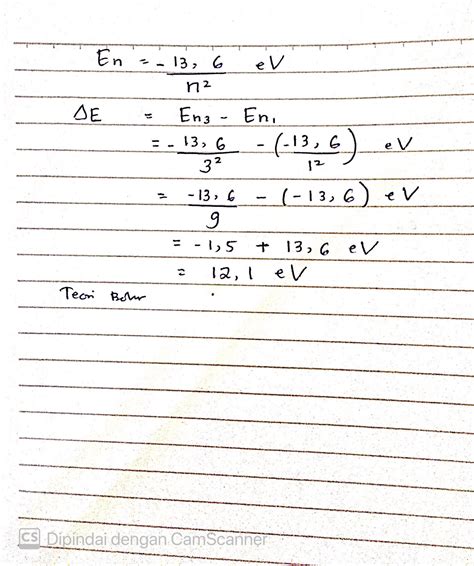 En = - 13,6 / n² eV
ΔE = En₃ - En₁
= - 13,6 / 3² - (-13,6 / 1²) eV
= -13,6 / 9 - (-13,6) eV
= -1,5 + 13,6 eV
= 12,1 eV
Teori Bohr
CS Dipindai dengan CamScanner